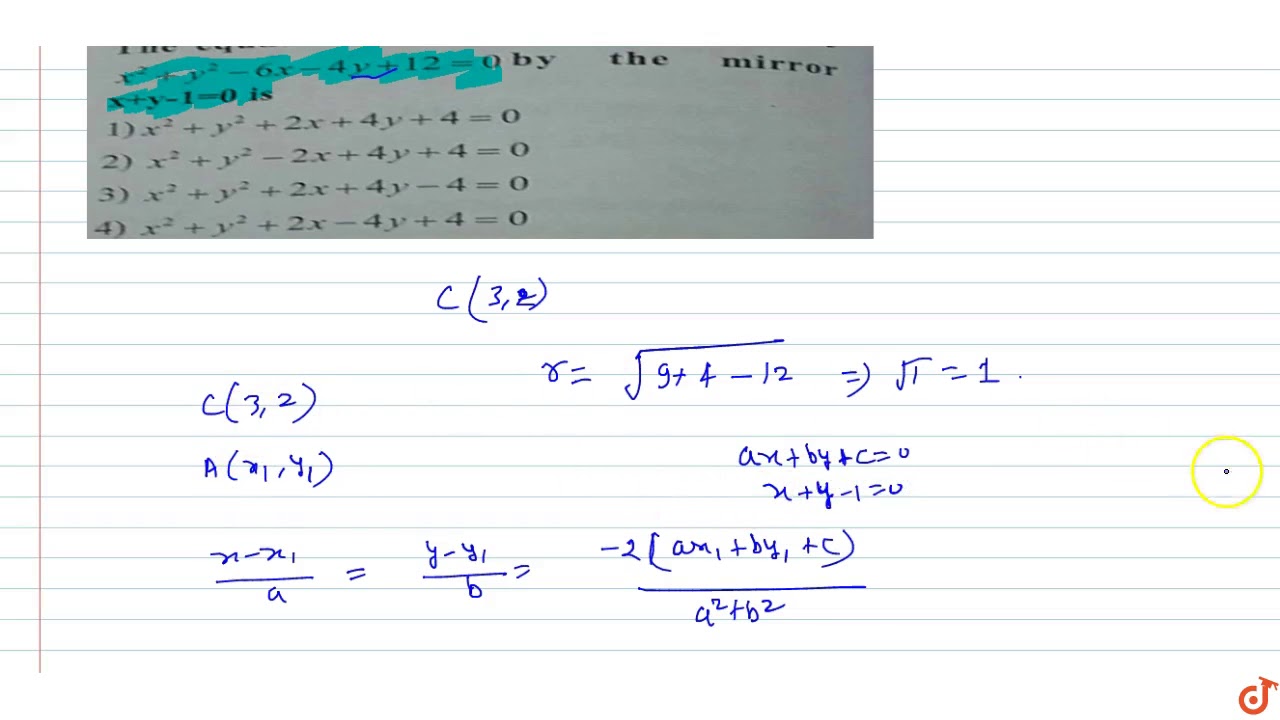 The equa
x² + y² − 6x − 4y + 12 = 0 by the mirror
x+y-1=0 is
1) x² + y² + 2x + 4y + 4 = 0
2) x² + y² − 2x + 4y + 4 = 0
3) x² + y² + 2x + 4y − 4 = 0
4) x² + y² + 2x − 4y + 4 = 0
C(3,2)
r = √(9+4−12) ⇒ √1 = 1.
C(3,2)
A(x₁,y₁)
ax+by+c=0
x+y−1=0
(x−x₁)/a = (y−y₁)/b = −2(ax₁+by₁+c)/(a²+b²)